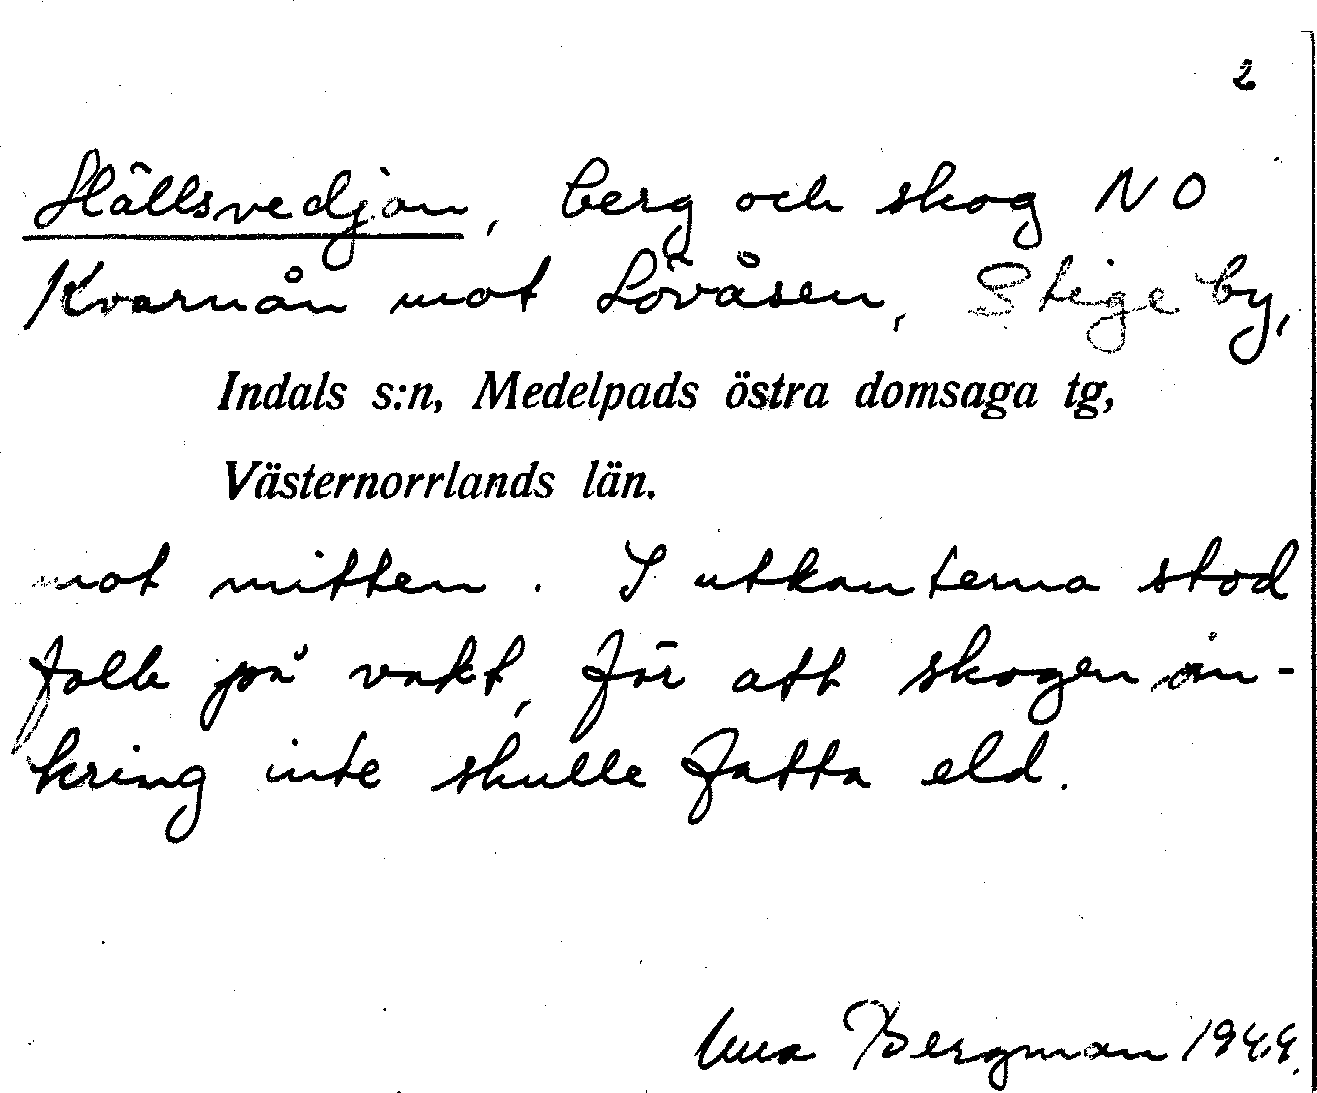 2
Hällsvedjan, berg och skog NO
Kvarnån mot Lövåsen, Stige by,
Indals s:n, Medelpads östra domsaga tg,
Västernorrlands län.
mot mitten. I utkanterna stod
folk på vakt, för att skogen in-
kring inte skulle fatta eld.
Bergman 1944.